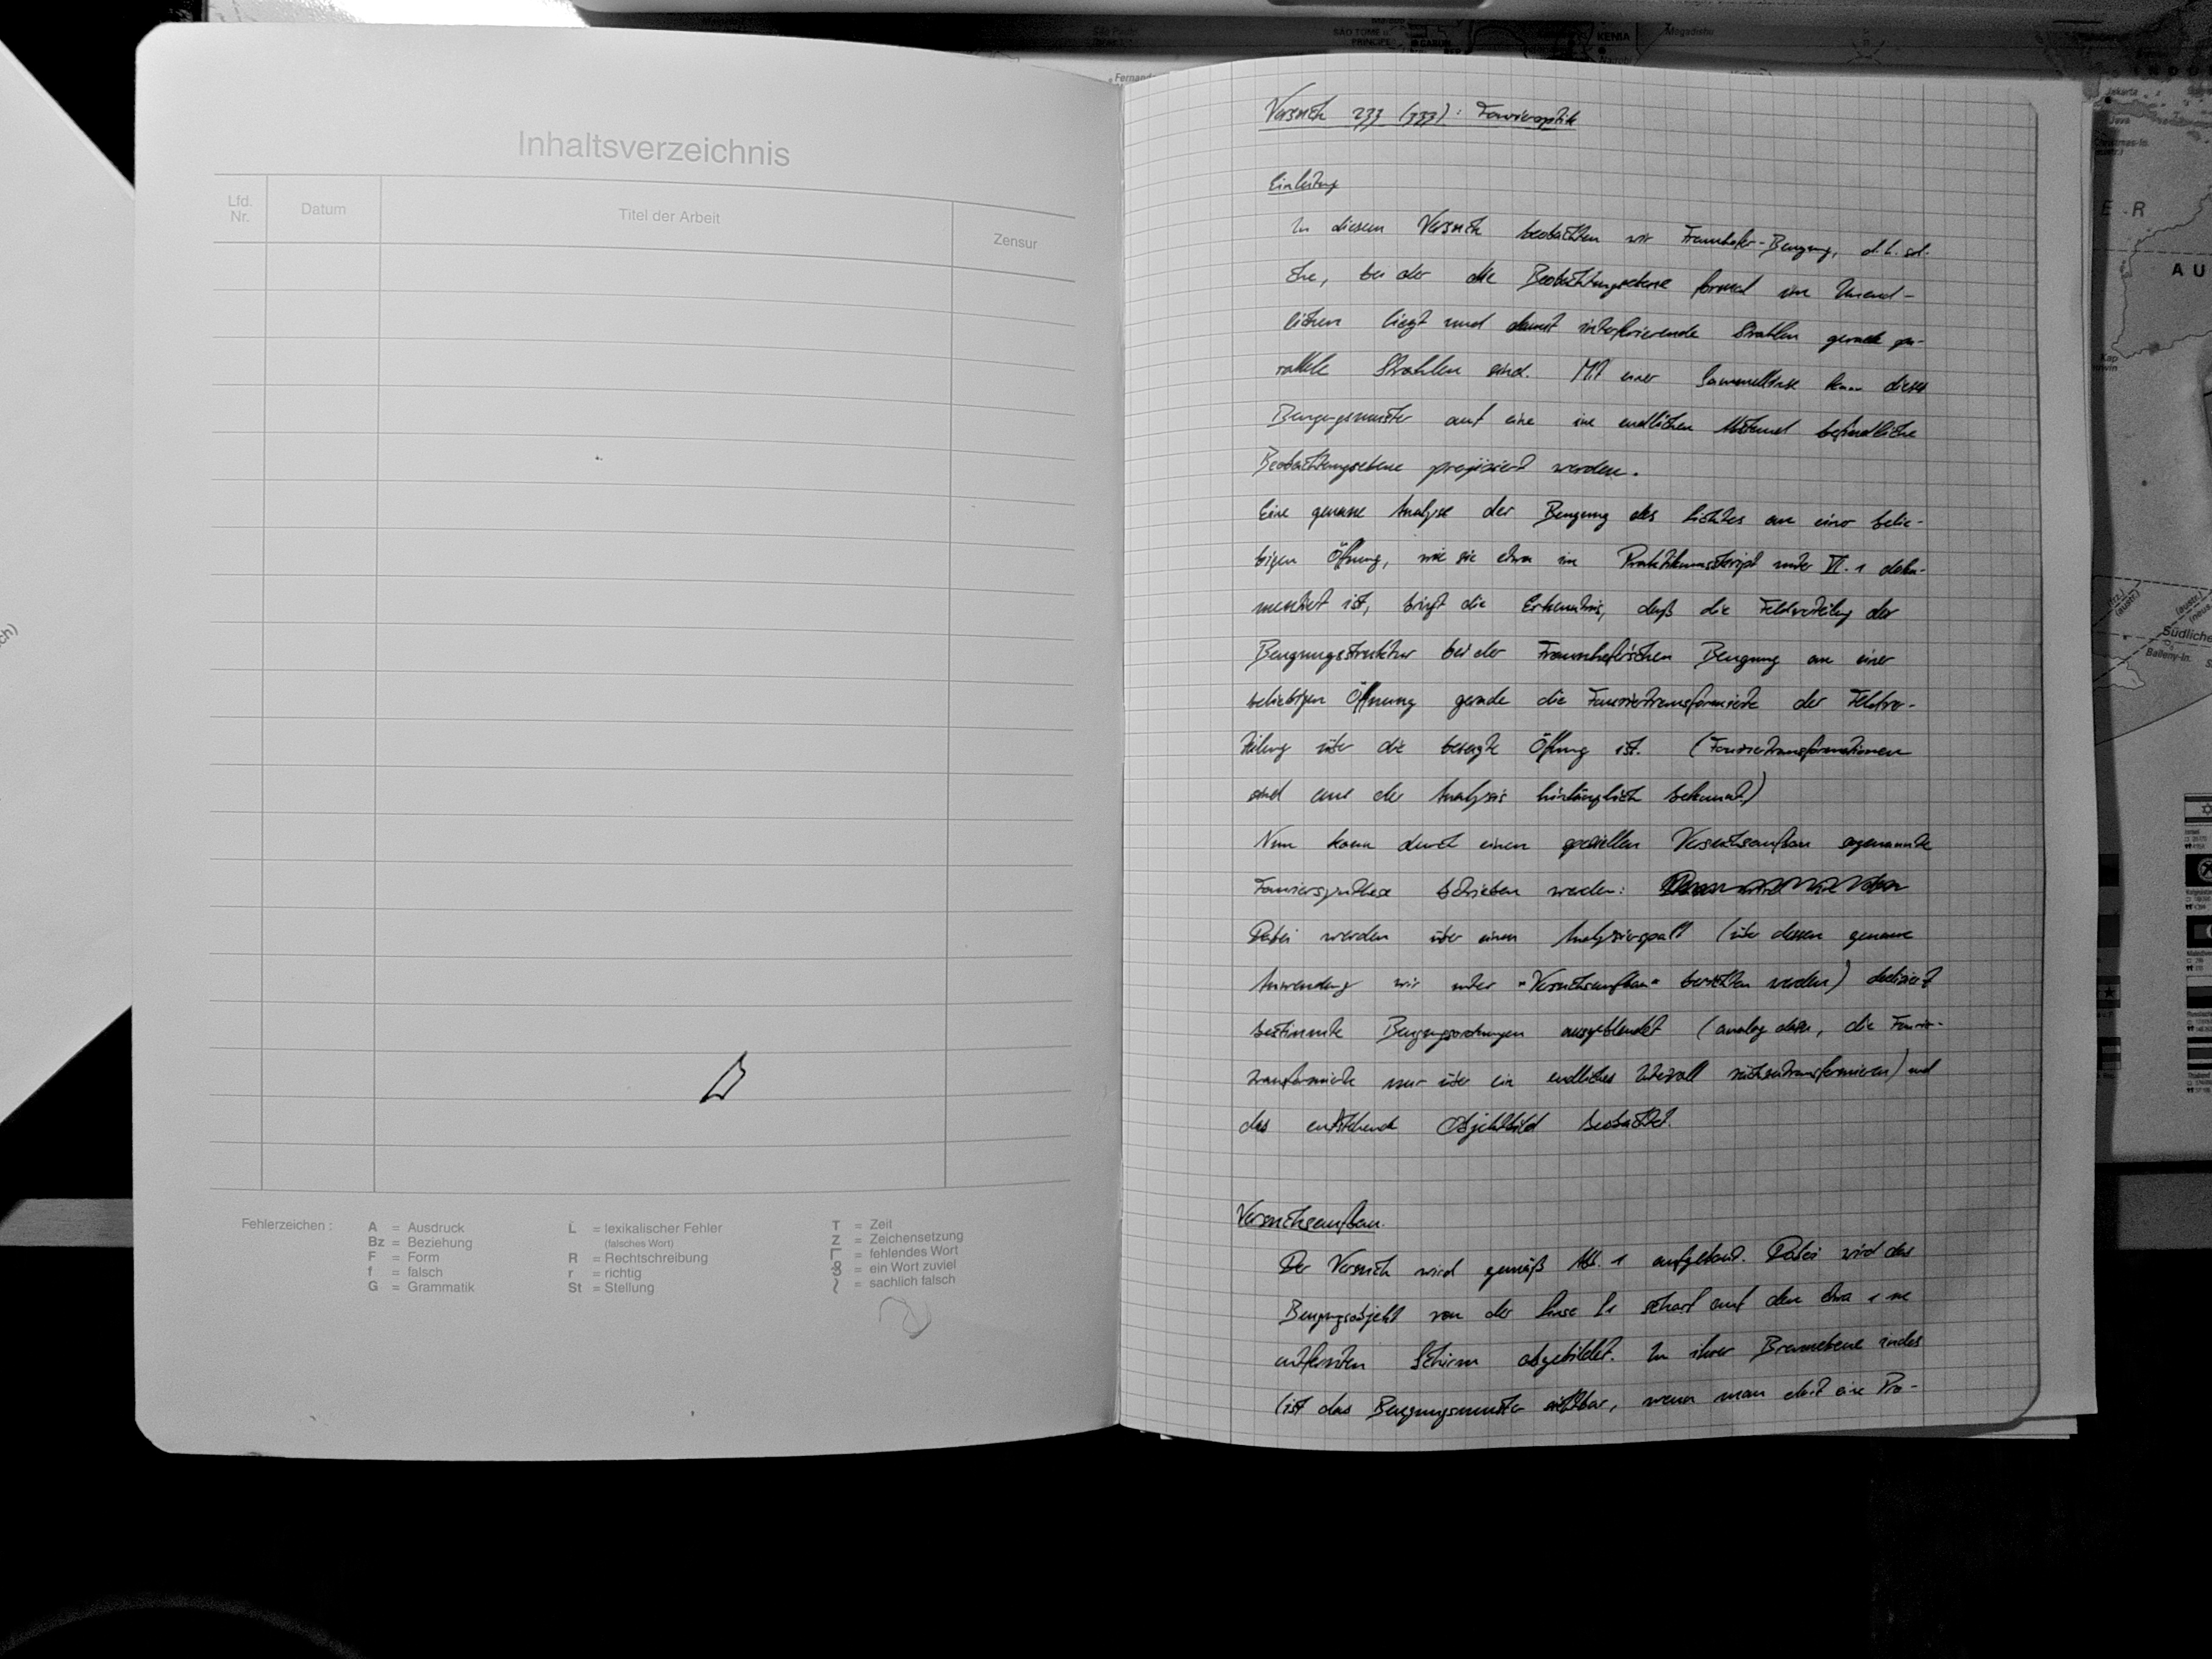 Inhaltsverzeichnis
Lfd. Nr.
Datum
Titel der Arbeit
Zensur
Fehlerzeichen :
A = Ausdruck
Bz = Beziehung
F = Form
f = falsch
G = Grammatik
L = lexikalischer Fehler
(falsches Wort)
R = Rechtschreibung
r = richtig
St = Stellung
T = Zeit
Z = Zeichensetzung
Γ = fehlendes Wort
= ein Wort zuviel
= sachlich falsch
Versuch 233 (333): Fourieroptik
Einleitung
In diesem Versuch beobachten wir Fraunhofer-Beugung, d.h. sol-
che, bei der die Beobachtungsebene formal im Unend-
lichen liegt und damit interferierende Strahlen gerade pa-
rallele Strahlen sind. Mit einer Sammellinse kann dieses
Beugungsmuster auf eine im endlichen Abstand befindliche
Beobachtungsebene projiziert werden.
Eine genaue Analyse der Beugung des Lichtes an einer belie-
bigen Öffnung, wie sie etwa im Praktikumsskript unter VI.1 doku-
mentiert ist, bringt die Erkenntnis, daß die Feldverteilung der
Beugungsstruktur bei der Fraunhoferschen Beugung an einer
beliebigen Öffnung gerade die Fouriertransformierte der Feldver-
teilung über die besagte Öffnung ist. (Fouriertransformationen
sind aus der Analysis hinlänglich bekannt.)
Nun kann durch einen speziellen Versuchsaufbau sogenannte
Fouriersynthese betrieben werden:
Dabei werden über einen Analysierspalt (über dessen genaue
Anwendung wir unter "Versuchsaufbau" berichten werden) dediziert
bestimmte Beugungsordnungen ausgeblendet (analog dazu, die Fourier-
transformierte nur über ein endliches Intervall rückzutransformieren) und
das entstehende Objektbild beobachtet.
Versuchsaufbau.
Der Versuch wird gemäß Abb. 1 aufgebaut. Dabei wird das
Beugungsobjekt von der Linse L1 scharf auf den etwa 1 m
entfernten Schirm abgebildet. In ihrer Brennebene indes
ist das Beugungsmuster sichtbar, wenn man dort eine Pro-
SÃO TOMÉ
PRÍNCIPE
KENIA
Nairobi
Mogadischu
Jakarta
Java
Christmas-In.
(austr.)
Südliche
Balleny-In.